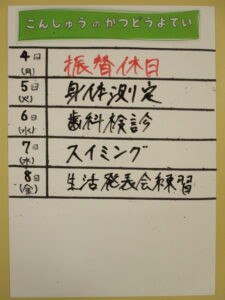 こんしゅうのかつどうよてい
4日(月) 振替休日
5日(火) 身体測定
6日(水) 歯科検診
7日(木) スイミング
8日(金) 生活発表会練習